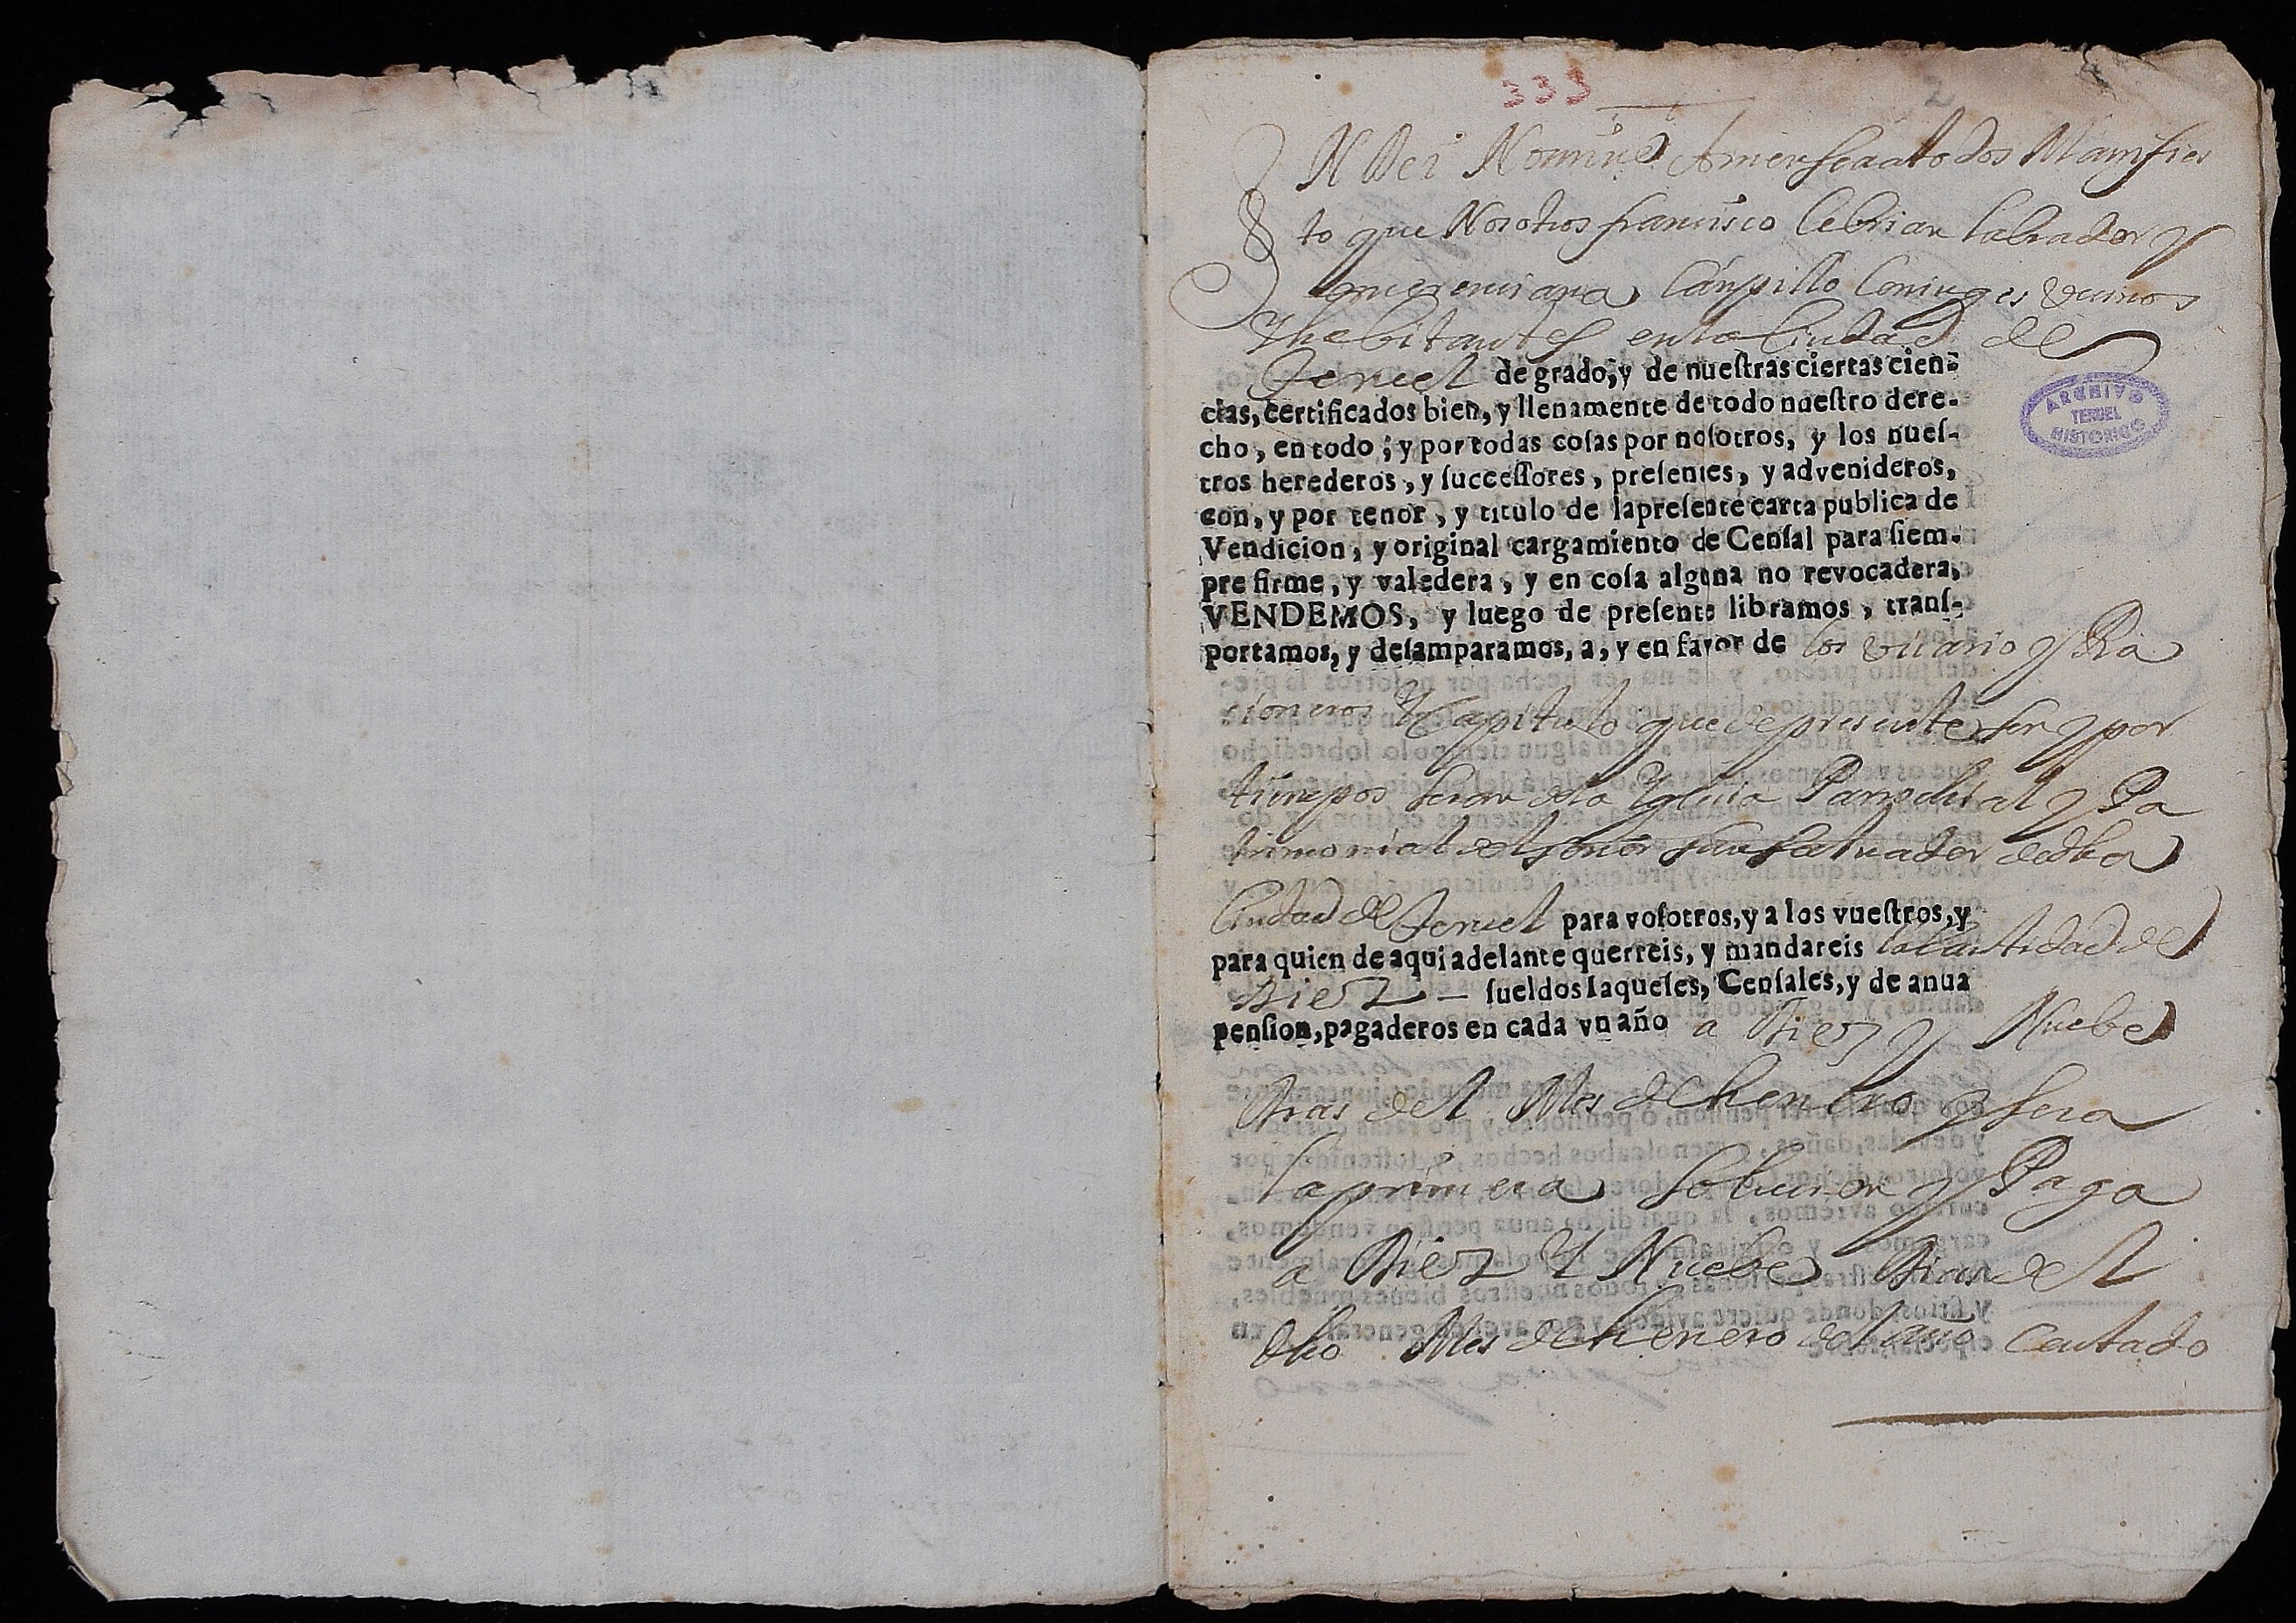 333
2
IN Dei Nomine Amen sea a todos Manifies
to que Nosotros francisco Cebrian labrador y
Campillo Coniuges vecinos
Y habitantes en la Ciudad de
Teruel de grado, y de nueſtras ciertas cien-
cias, certificados bien, y llenamente de todo nueſtro dere-
cho, en todo; y por todas coſas por noſotros, y los nueſ-
tros herederos, y ſucceſſores, preſentes, y advenideros,
con, y por tenor, y titulo de lapreſente carta publica de
Vendicion, y original cargamiento de Cenſal para ſiem-
pre firme, y valedera, y en coſa alguna no revocadera,
VENDEMOS, y luego de preſente libramos, tranſ-
portamos, y deſamparamos, a, y en favor de los Vicario y Ra
cioneros Y Capitulo que de presente son y por
tiempos seran de la Yglesia Parrochial y Pa
trimonial del señor san salvador de dha
Ciudad de Teruel para voſotros, y a los vueſtros, y
para quien de aqui adelante querreis, y mandareis la Cantidad de
Diez — ſueldos Iaqueſes, Cenſales, y de anua
penſion, pagaderos en cada vn año a Diez y Nuebe
Dias del Mes de henero y sera
la primera Solucion y Paga
a Diez Y Nuebe Dias del
dho Mes de henero del año Contado
ARCHIVO
TERUEL
HISTORICO